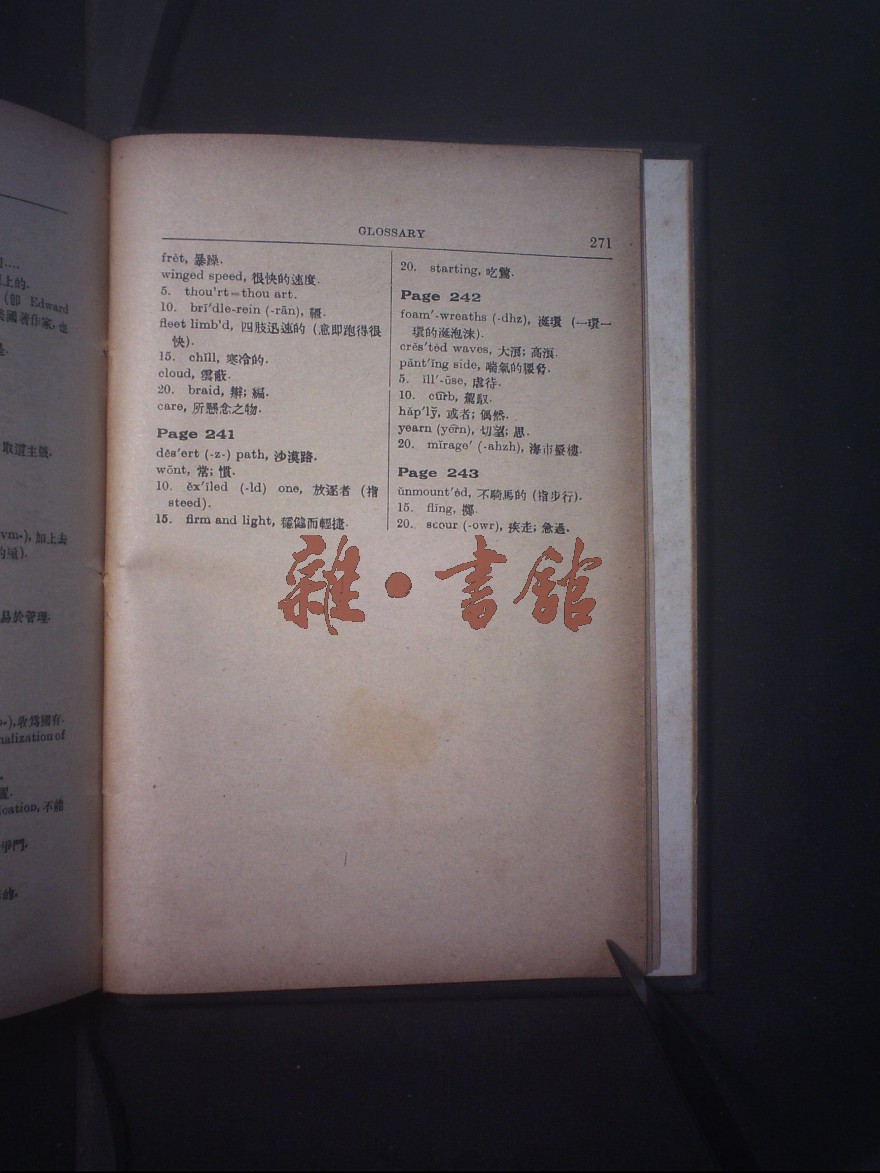 GLOSSARY
271
frĕt, 暴躁.
winged speed, 很快的速度.
5. thou'rt=thou art.
10. brī′dle-rein (-rān), 韁.
fleet limb'd, 四肢迅速的 (意即跑得很
快).
15. chĭll, 寒冷的.
cloud, 雲蔽.
20. braid, 辮; 編.
care, 所懸念之物.
Page 241
dĕs′ert (-z-) path, 沙漠路.
wŏnt, 常; 慣.
10. ĕx′iled (-ld) one, 放逐者 (指
steed).
15. firm and light, 穩健而輕捷.
20. starting, 吃驚.
Page 242
foam′-wreaths (-dhz), 涎環 (一環一
環的涎泡沫).
crĕs′tĕd waves, 大浪; 高浪.
pănt′ĭng side, 喘氣的腰脅.
5. ĭll′-ūse, 虐待.
10. cûrb, 駕馭.
hăp′lў, 或者; 偶然.
yearn (yẽrn), 切望; 思.
20. mïrage′ (-ahzh), 海市蜃樓.
Page 243
ŭnmount′ĕd, 不騎馬的 (指步行).
15. flĭng, 擲.
20. scour (-owr), 疾走; 急過.
雜·書館
上的.
(卽 Edward
美國著作家, 也
取這主義.
加上去
易於管理.
收爲國有.
nalization of
置.
ication, 不能
的.